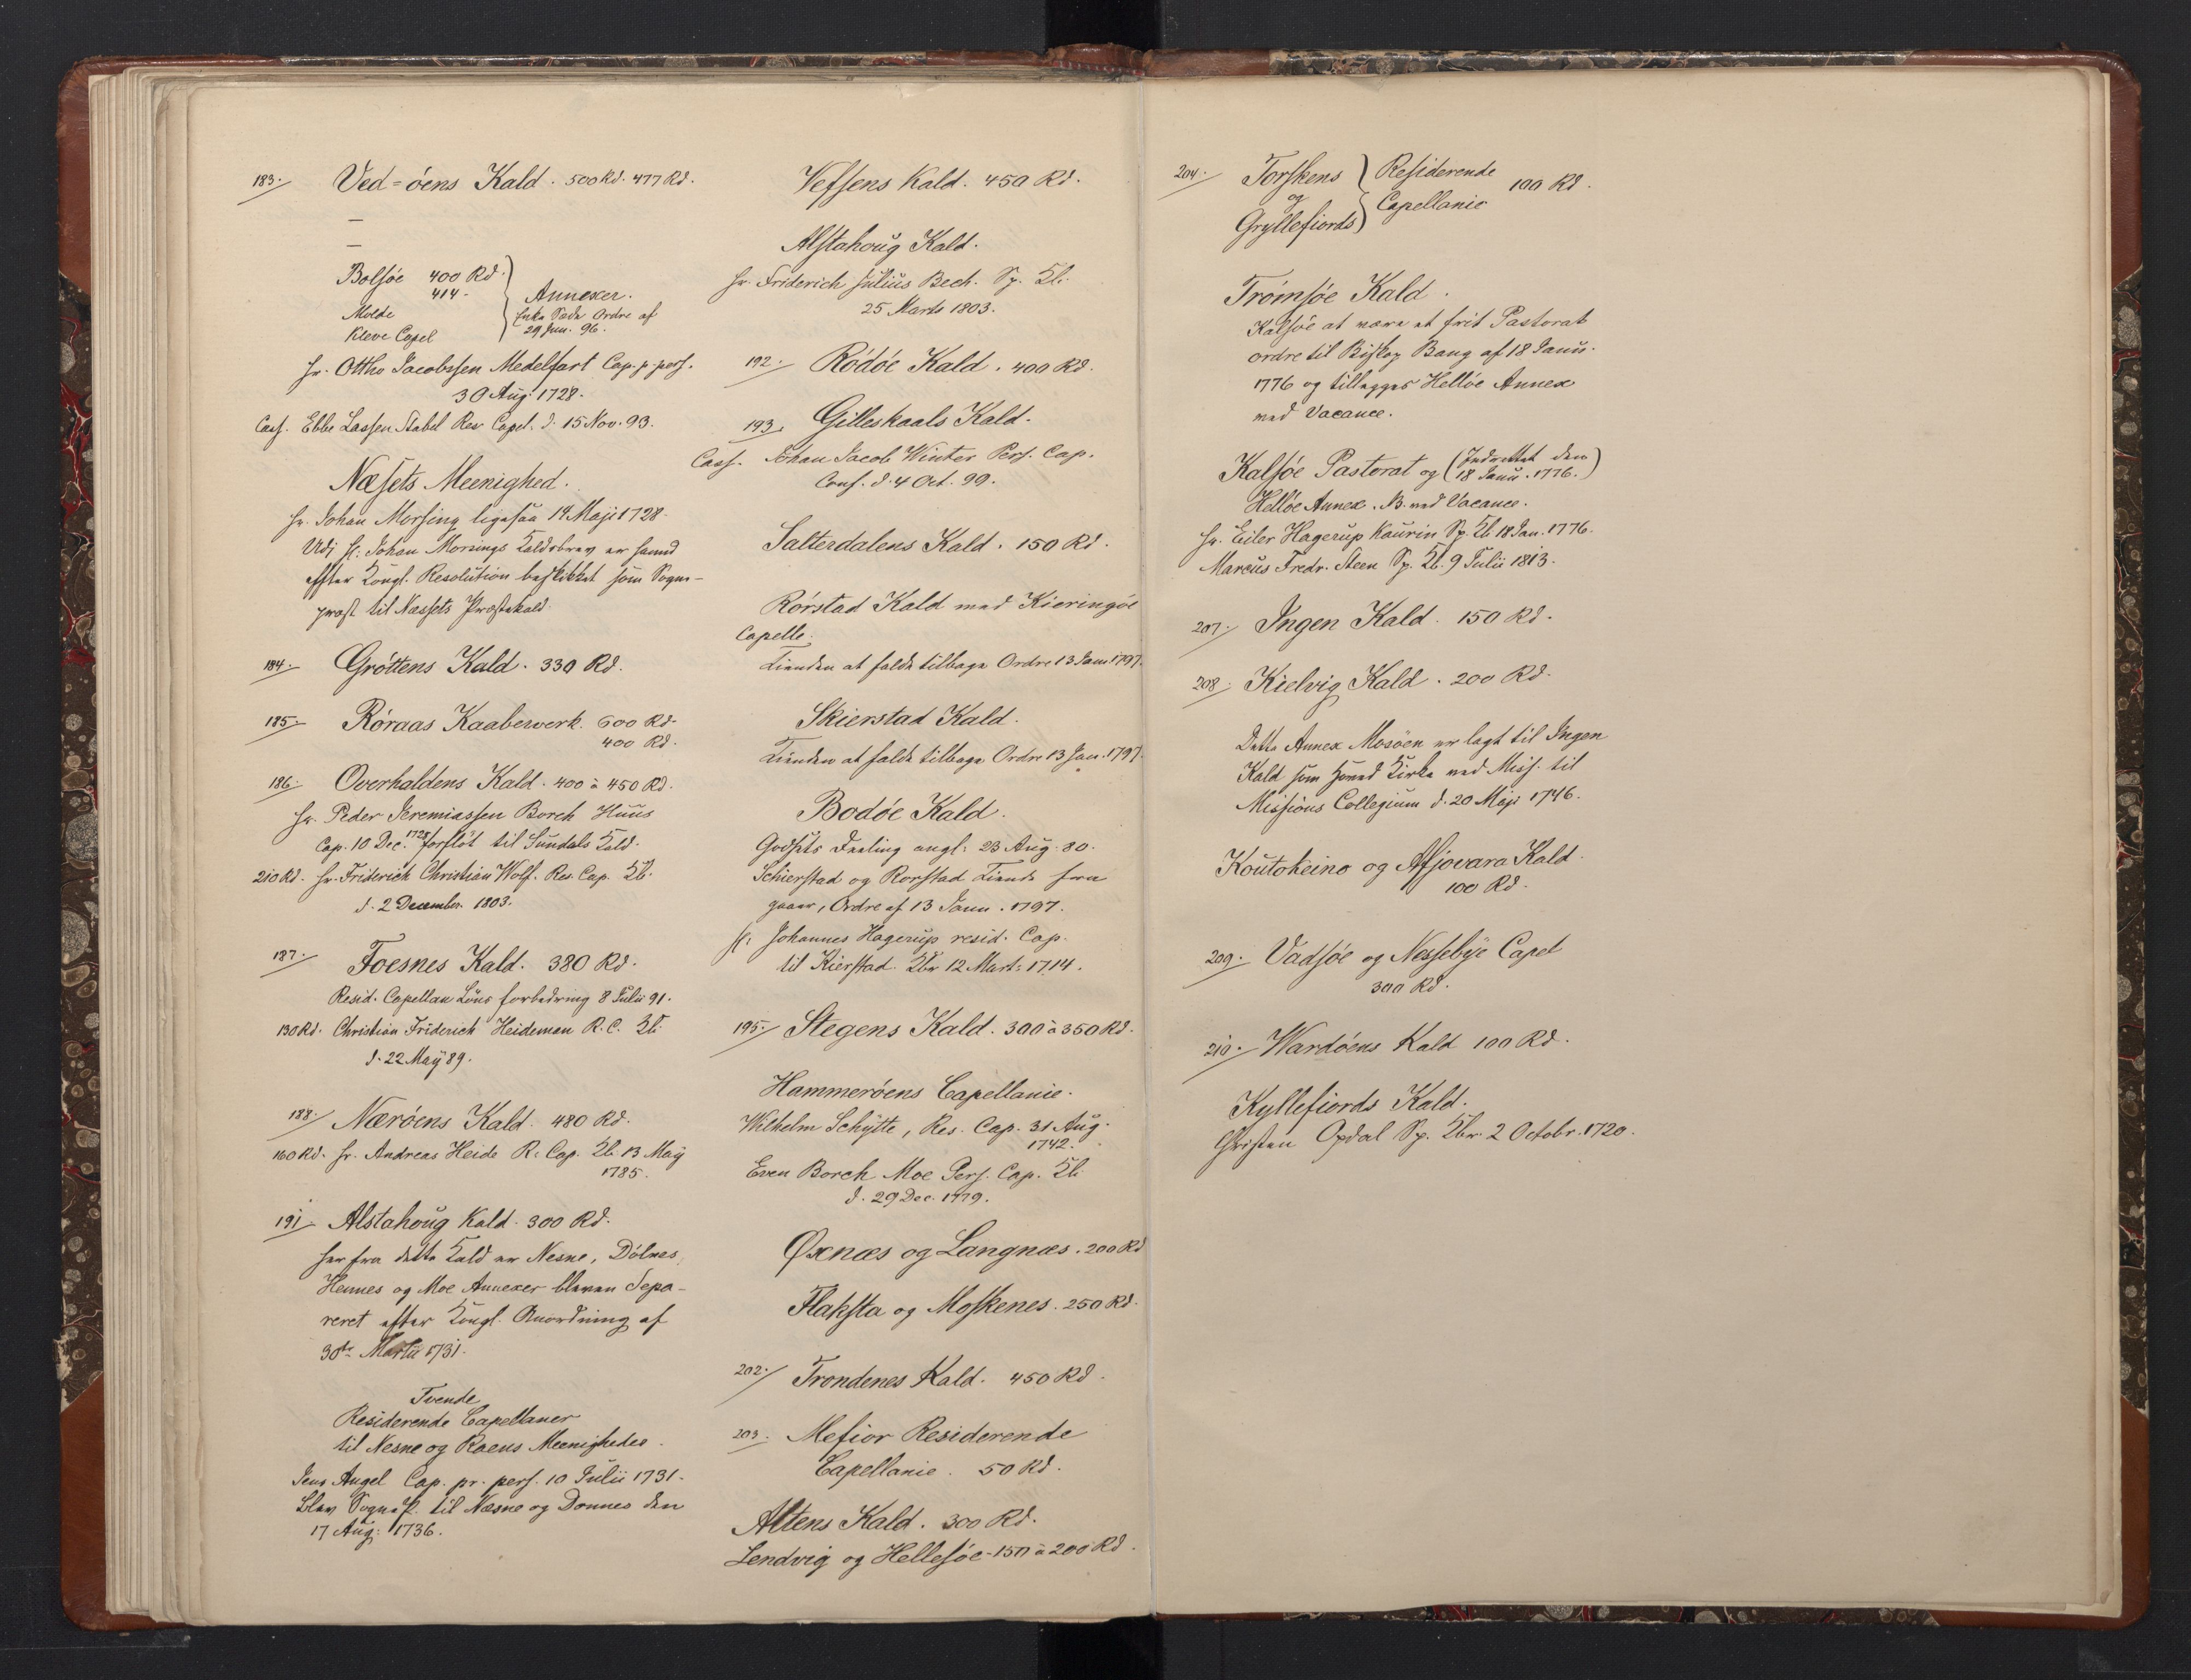 183. Ved-öens Kald. 500 Rd. 477 Rd.
—
—
Bolsöe 400 Rd.
414.
Molde
Kleve Capel
Annexer.
Enke Sæde Ordre af
29 Jun. 96.
Hr. Ottho Jacobssen Medelfart Cap. p. pers.
30 Aug. 1728.
Cass. Ebbe Lassen Stabel Res Capel. d. 15 Nov. 93.
Næsets Meenighed.
Hr. Johan Morsing ligesaa 14 Maji 1728.
Udj Hr. Johan Morsings Kaldsbrev er hand
efter Kongl. Resolution beskikket som Sogne-
præst til Næssets Præstekald.
184. Gröttens Kald. 330 Rd.
185. Röraas Kaaberverk. 600 Rd.
400 Rd.
186. Overhaldens Kald. 400 à 450 Rd.
Hr. Peder Jeremiassen Borch Huus
Cap. 10 Dec. 1728 forflöt til Sundals Kald.
210 Rd. Hr. Friderich Christian Wolf. Res. Cap. Kb.
d. 2 December 1803.
187. Foesnes Kald. 380 Rd.
Resid. Capellan Löns forbedring 8 Julii 91.
130 Rd. Christian Friderich Heideman R. C. Kb.
d. 22 Maÿ 89.
188. Næröens Kald. 480 Rd.
160 Rd. Hr. Andreas Heide R. Cap. Kb. 13 Maÿ
1785.
191. Alstahoug Kald. 300 Rd.
Her fra dette Kald er Nesne, Dölnes,
Hennes og Moe Annexer bleven Sepa-
reret efter Kongl. Anordning af
30te Martii 1731.
Tvende
Residerende Capellaner
til Nesne og Raens Meenigheder.
Jens Angel Cap. pr. pers. 10 Julii 1731.
blev Sogne P. til Næsne og Donnes den
17 Aug: 1736.
Vefsens Kald. 450 Rd.
Alstahoug Kald.
Hr. Friderich Julius Bech. Sp. Kb.
25 Marts 1803.
192. Rödöe Kald. 400 Rd.
193. Gilleskaals Kald.
Cass. Johan Jacob Winter Pers. Cap.
Conf. d. 4 Oct. 99.
Salterdalens Kald. 150 Rd.
Rörstad Kald med Kieringöe
Capelle.
Tienden at falde tilbage Ordre 13 Janu 1797.
Skierstad Kald.
Tienden at falde tilbage Ordre 13 Jan. 1797.
Bodöe Kald.
Godsets Deeling angl: 23 Aug. 80.
Schierstad og Rorstad Tiende fra
gaaer, Ordre af 13 Janu. 1797.
Hr. Johannes Hagerup resid. Cap.
til Kierstad. Kbr 12 Mart: 1714.
195. Stegens Kald. 300 à 350 Rd.
Hammeröens Capellanie.
Wilhelm Schÿtte, Res. Cap. 31 Aug.
1742.
Even Borch Moe Pers. Cap. Kb.
d. 29 Dec. 1779.
Öxnæs og Langnæs. 200 Rd
Flaksta og Moskenes. 250 Rd.
202. Trondenes Kald. 450 Rd.
203. Mefior Residerende
Capellanie. 50 Rd.
Altens Kald. 300 Rd.
Lendvig og Hellesöe. 150 à 200 Rd.
204. Torskens
og
Gryllefiords
Residerende
Capellanie
100 Rd.
Trömsöe Kald.
Kalsöe at være et frit Pastorat
ordre til Biskop Bang af 18 Janu.
1776 og tillegges Hellöe Annex
ved Vacance.
Kalsöe Pastorat og (Indrettet den
18 Janu. 1776.)
Hellöe Annex. N. ved Vacance.
Hr. Eiler Hagerup Kaurin Sp. Kb 18 Jan. 1776.
Marcus Fredr. Steen Sp. Kb. 9 Julii 1813.
207. Ingen Kald. 150 Rd.
208. Kielvig Kald. 200 Rd.
Dette Annex Mosöen er lagt til Ingen
Kald som Hoved Kirke ved Miss. til
Missions Collegium d. 20 Maji 1746.
Koutokeino og Afjovara Kald.
100 Rd.
209. Vadsöe og Nessebye Capel
300 Rd.
210. Wardöens Kald 100 Rd.
Kyllefiords Kald.
Christen Opdal Sp. Kbr. 2 Octobr. 1720.